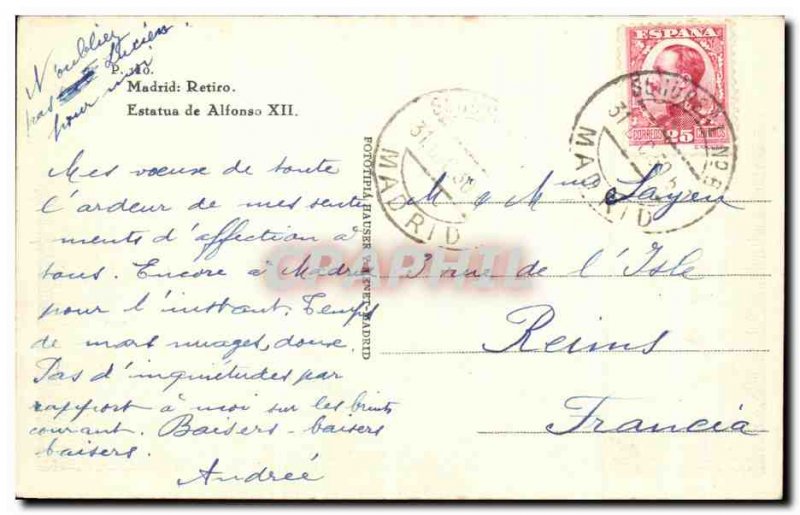 N'oublier
pas Lucien
pour moi
P. 110.
Madrid: Retiro.
Estatua de Alfonso XII.
Mes vœux de toute
l'ardeur de mes senti
ments d'affection à
tous. Encore à Madrid
pour l'instant. Temps
de mars nuages, doux.
Pas d'inquietudes par
rapport à moi sur les bruits
courant. Baisers - baisers
baisers.
Andrée
FOTOTIPIA HAUSER Y MENET.-MADRID
ESPAÑA
CORREOS 25 CENTIMOS
MADRID
MADRID
M & Mme
3 rue de l'Isle
Reims
Francia
CPAPHIL